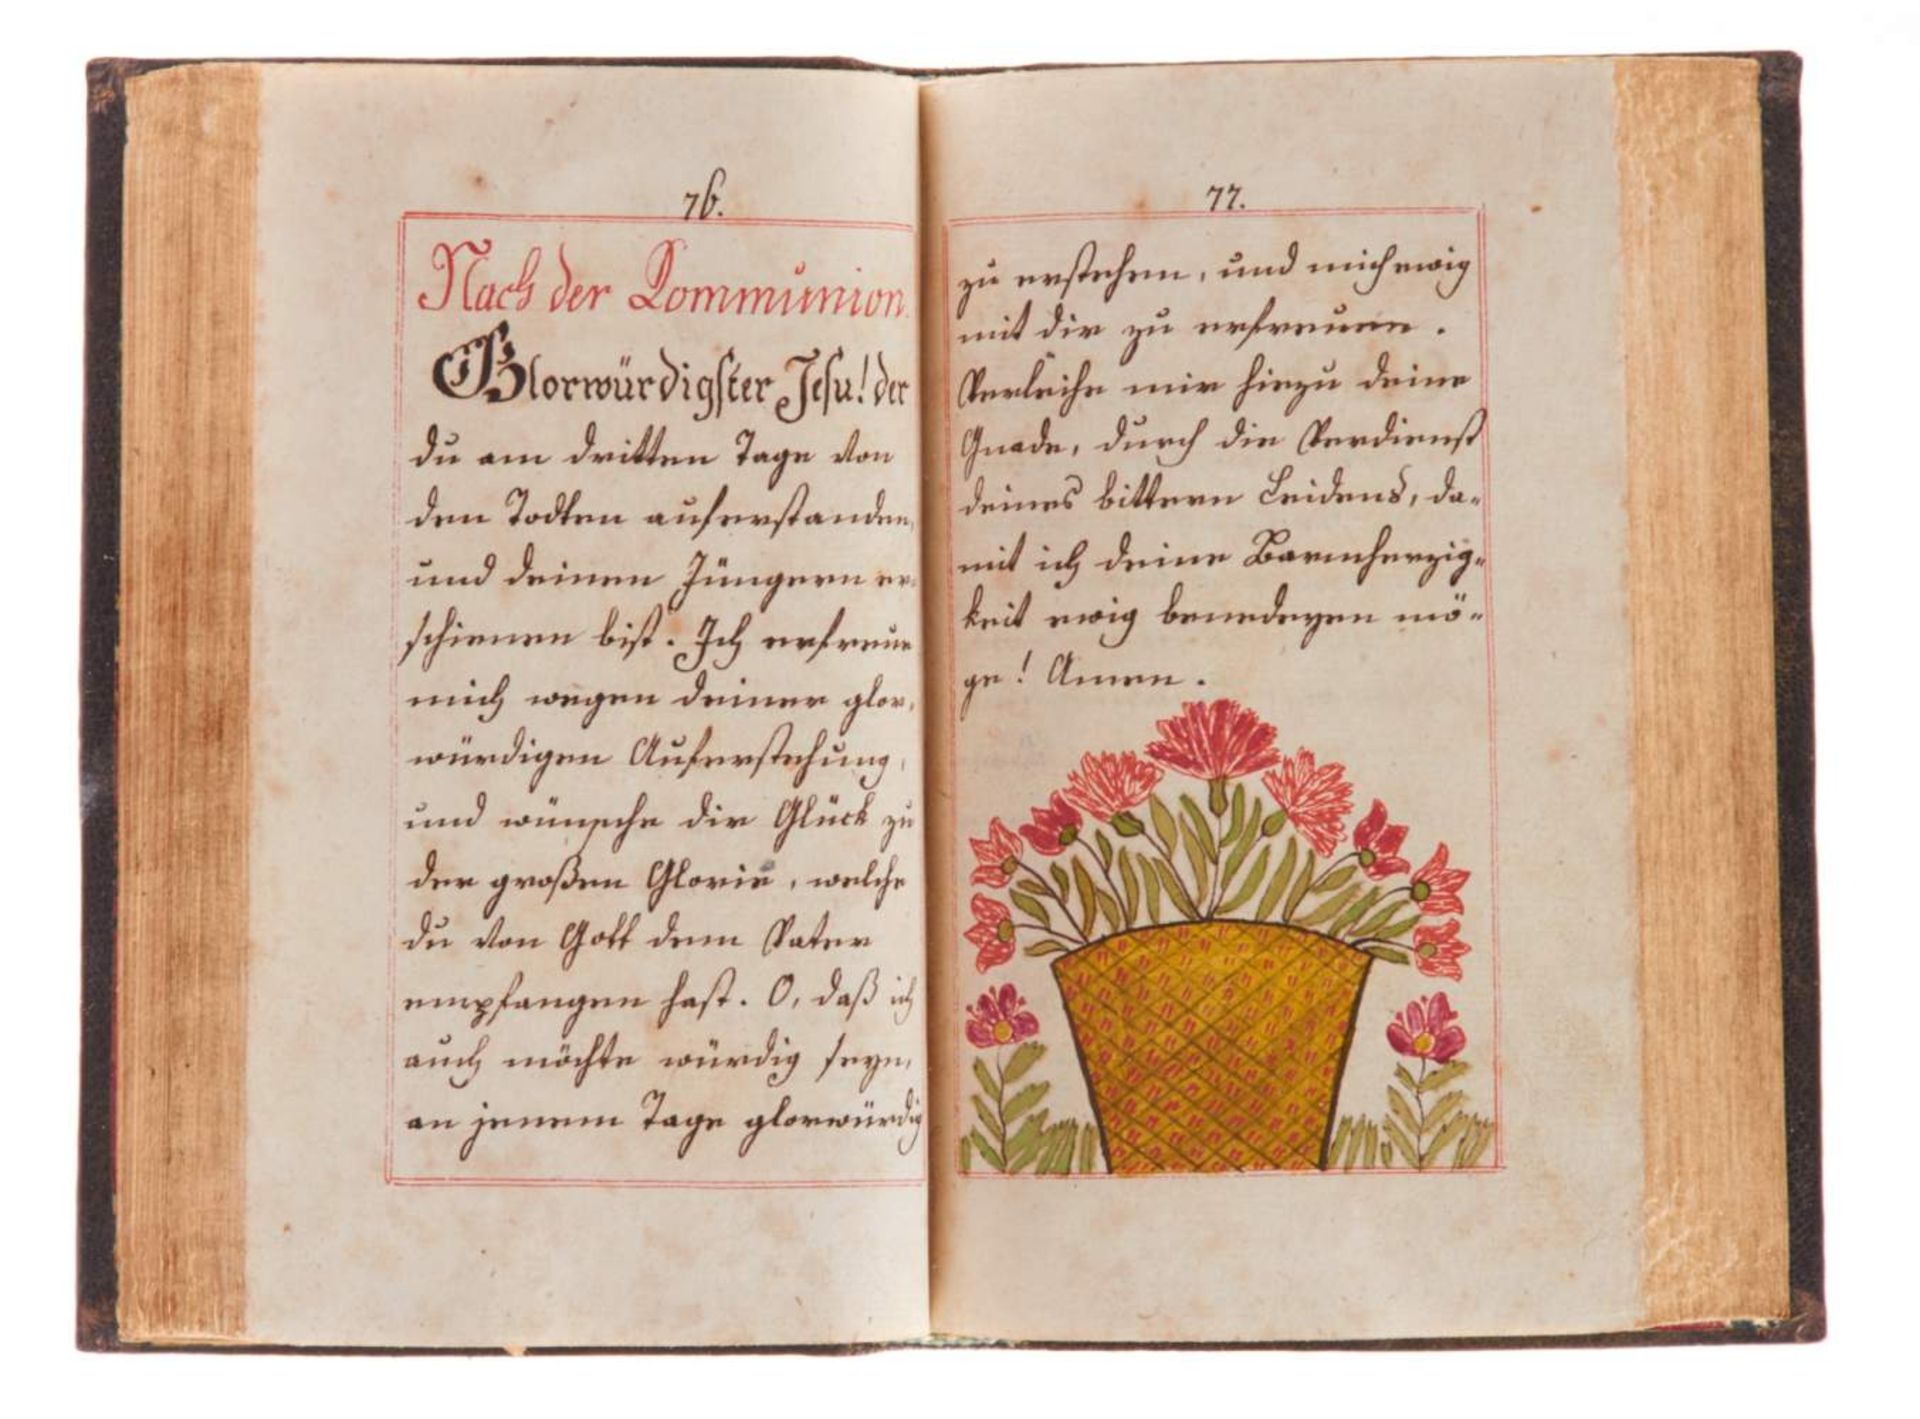 76.
Nach der Kommunion.
Glorwürdigster Jesu! der
du am dritten Tage von
den Todten auferstanden,
und deinen Jüngern er-
schienen bist. Ich erfreue
mich wegen deiner glor-
würdigen Auferstehung,
und wünsche dir Glück zu
der großen Glorie, welche
du von Gott dem Vater
empfangen hast. O, daß ich
auch möchte würdig seyn,
an jenem Tage glorwürdig
77.
zu erstehen, und mich ewig
mit dir zu erfreuen.
Verleihe mir hiezu deine
Gnade, durch die Verdienst
deines bittern Leidens, da-
mit ich deine Barmherzig-
keit ewig benedeyen mö-
ge! Amen.